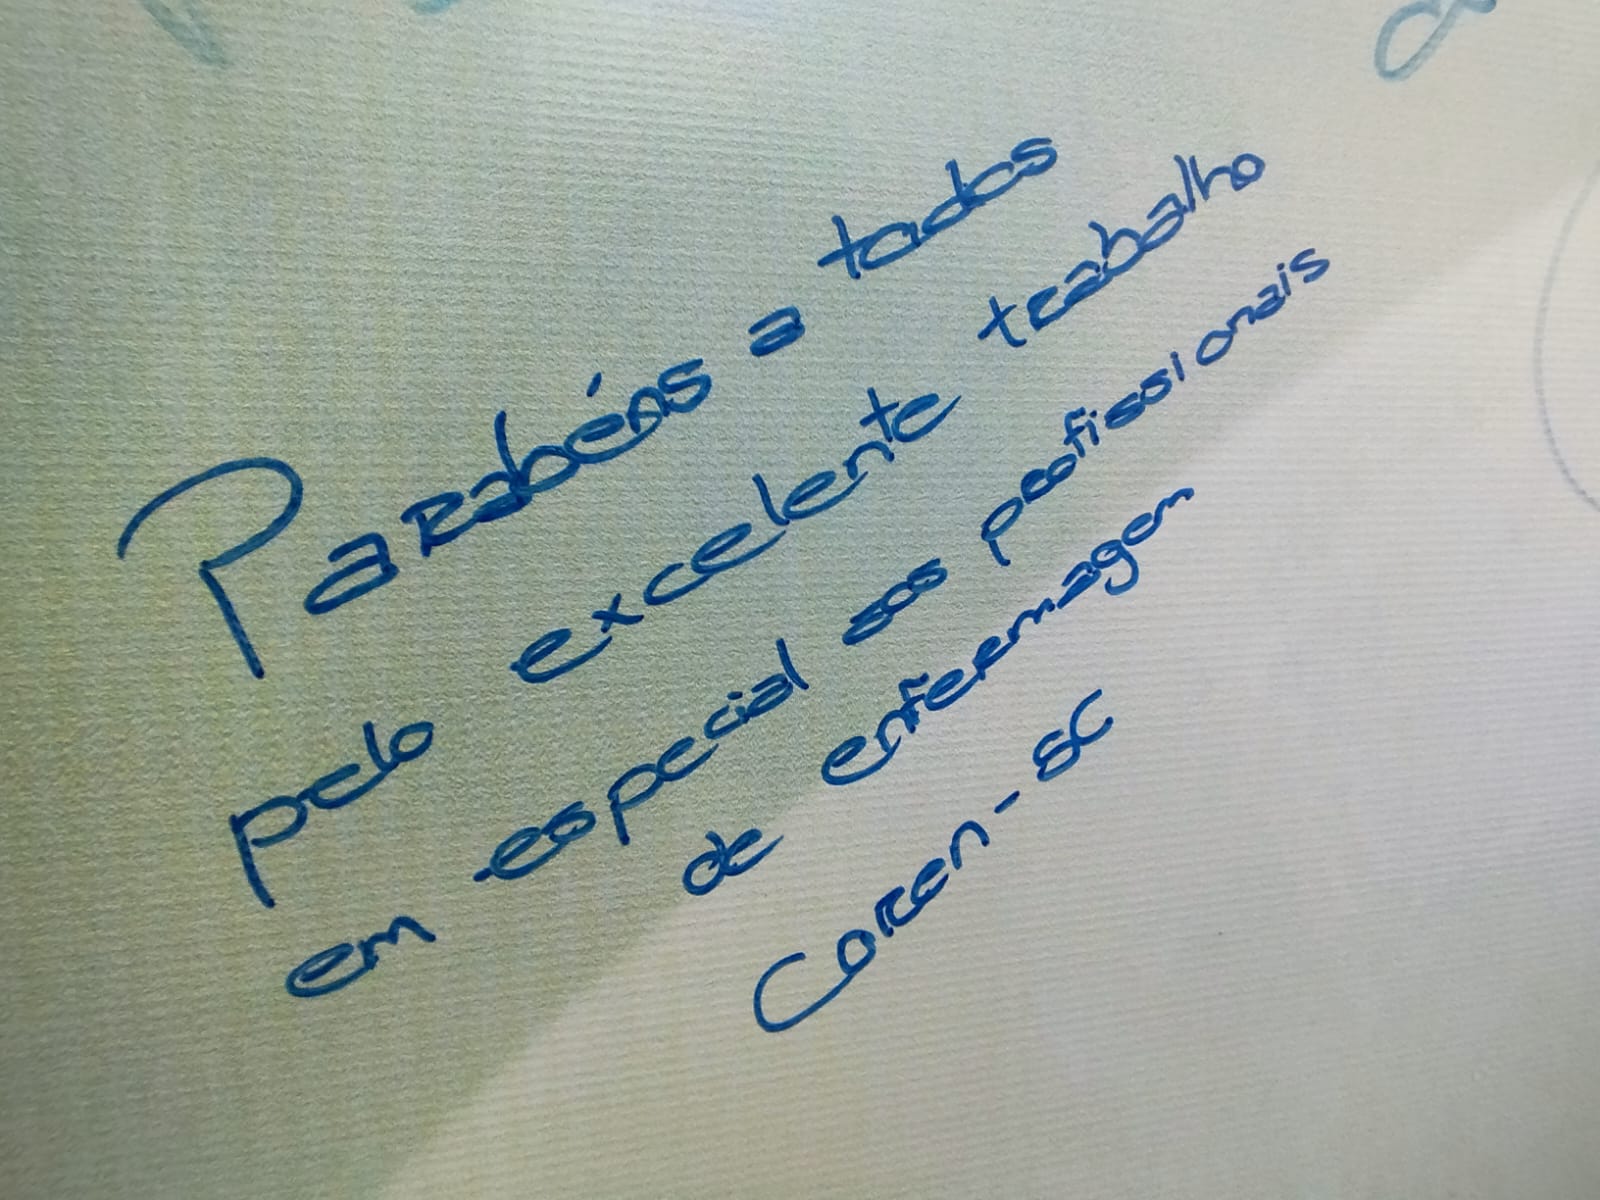 Parabéns a todos
pelo excelente trabalho
em especial aos profissionais
de enfermagem
Coren-SC